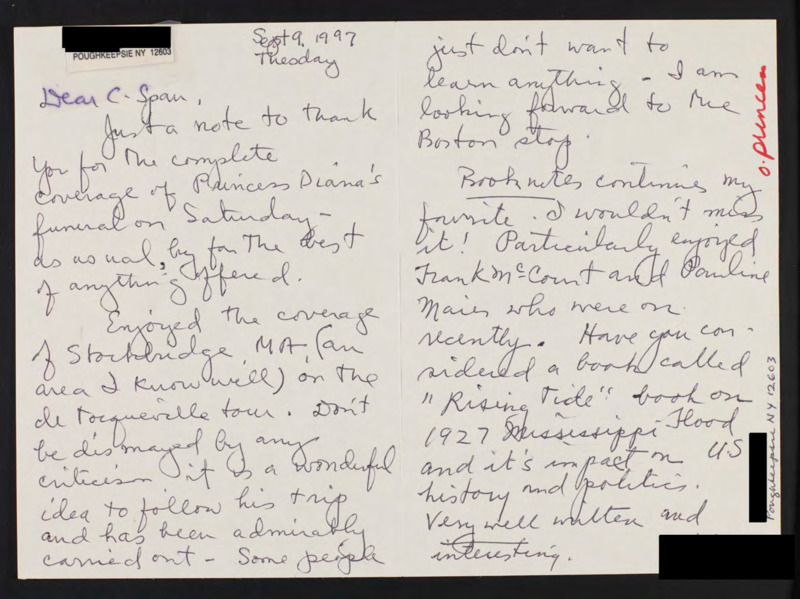 POUGHKEEPSIE NY 12603
Sept 9, 1997
Tuesday
Dear C-Span,
Just a note to thank
you for the complete
coverage of Princess Diana's
funeral on Saturday -
as usual, by far the best
of anything offered.
Enjoyed the coverage
of Stockbridge, MA, (an
area I know well) on the
de Tocqueville tour. Don't
be dismayed by any
criticism it is a wonderful
idea to follow his trip
and has been admirably
carried out - Some people
just don't want to
learn anything - I am
looking forward to the
Boston stop.
Booknotes continues my
favorite. I wouldn't miss
it! Particularly enjoyed
Frank McCourt and Pauline
Maier who were on
recently. Have you con-
sidered a book called
"Rising Tide" book on
1927 Mississippi Flood
and it's impact on US
history and politics.
Very well written and
interesting.
O. Princess
Poughkeepsie NY 12603